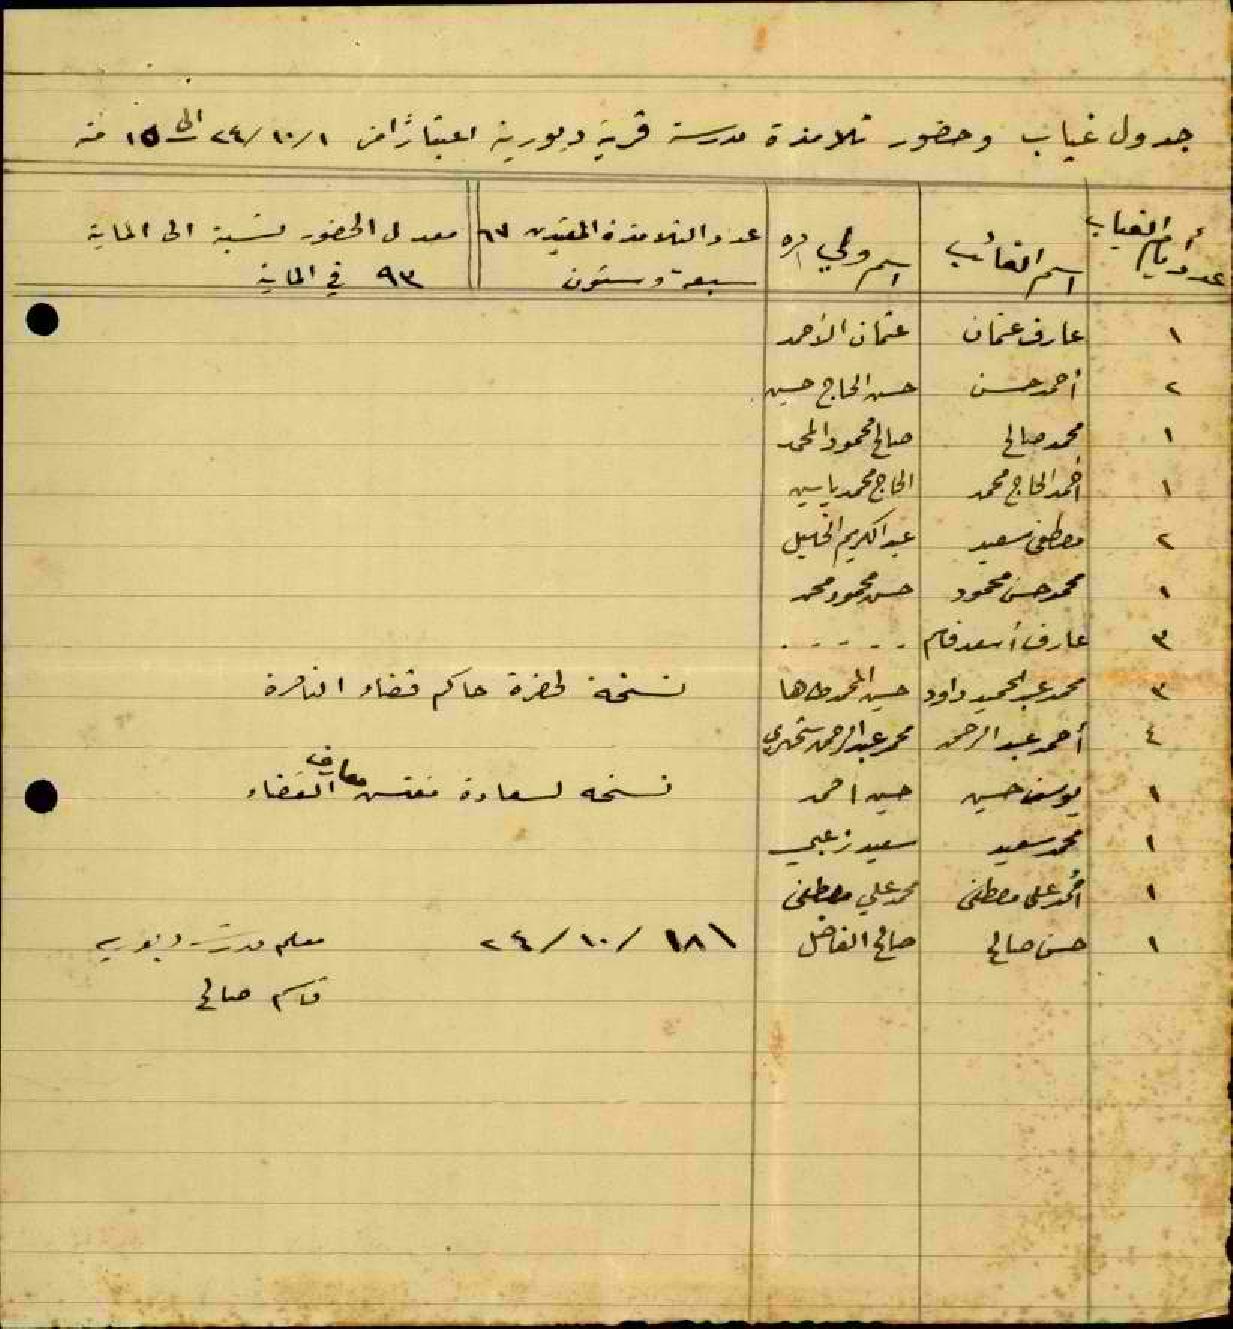 جدول غياب وحضور تلامذة مدرسة قرية دبورية اعتباراً من ٢٤/١٠/١ الى ١٥ منه
عدد أيام الغياب | اسم الغائب | اسم ولي امره | عدد التلامذة المقيدين ٦٧ سبعة وستون | معدل الحضور نسبة الى الماية ٩٣ في الماية
١ عارف عثمان عثمان الأحمد
٢ أحمد حسن حسن الحاج حسين
١ محمد صالح صالح محمود المحمد
١ أحمد الحاج محمد الحاج محمد ياسين
٢ مصطفى سعيد عبد الكريم الخليل
١ محمد حسن محمود حسن محمود محمد
٣ عارف أسعد قاسم . . . . . .
٣ محمد عبد الحميد داود حسين المحمد طاها نسخة لحضرة حاكم قضاء الناصرة
٤ أحمد عبد الرحمن محمد عبد الرحمن
١ يوسف حسين حسين احمد نسخه لسعادة مفتش معارف القضاء
١ محمد سعيد سعيد زعبي
١ أحمد علي مصطفى محمد علي مصطفى
١ حسن صالح صالح الفاضل ٢٤/١٠/١٨ معلم مدرسة دبورية
قاسم صالح